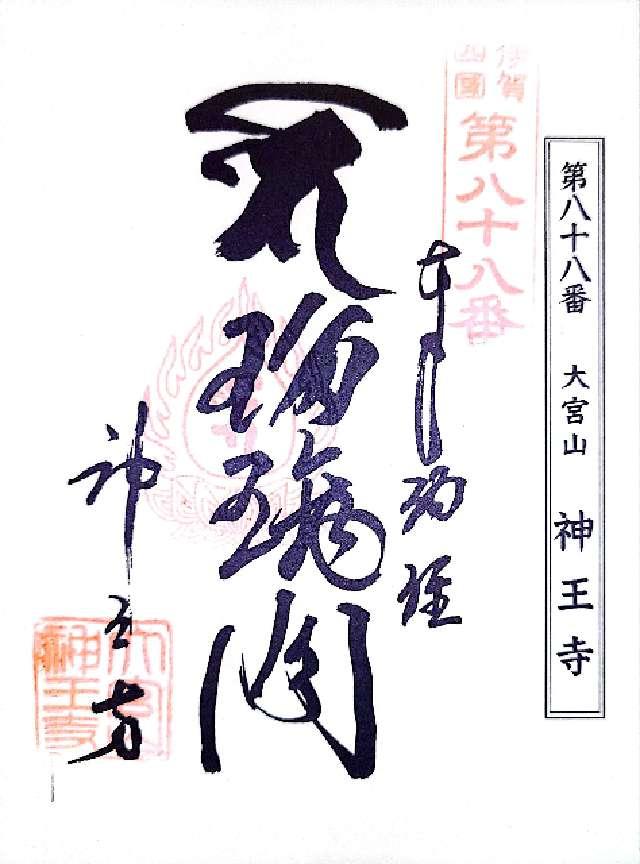 第八十八番 大宮山 神王寺
伊賀
四國
第八十八番
奉納経
瑠璃閣
神王寺
大宮山
神王寺